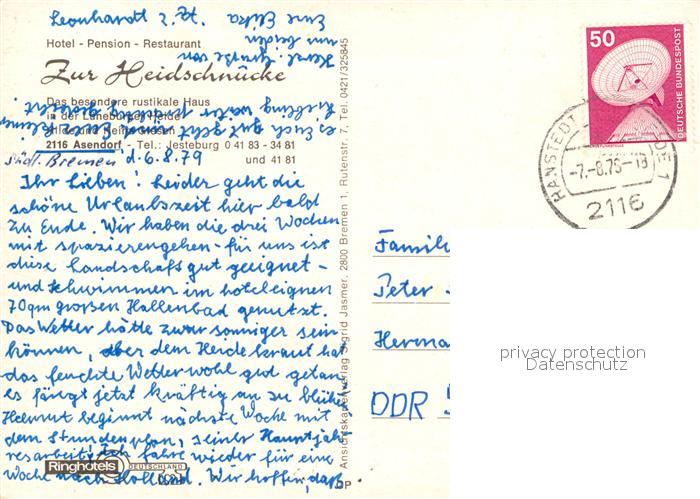 Hotel - Pension - Restaurant
Zur Heidschnucke
Das besondere rustikale Haus
in der Lüneburger Heide
2116 Asendorf - Tel.: Jesteburg 0 41 83 - 34 81
und 41 81
südl. Bremen, d. 6.8.79
Ihr Lieben! Leider geht die
schöne Urlaubszeit hier bald
zu Ende. Wir haben die drei Wochen
mit spazierengehen - für uns ist
diese Landschaft gut geeignet -
und schwimmen im hoteleignen
70qm großen Hallenbad genutzt.
Das Wetter hätte zwar sonniger sein
können, aber dem Heidekraut hat
das feuchte Wetter wohl gut getan
es fängt jetzt kräftig an zu blühen
Helmut beginnt nächste Woche mit
dem Stundenplan, seiner Hauptjah-
resarbeit. Ich fahre wieder für eine
Woche nach Holland. Wir hoffen, daß
es Euch gut geht
von beiden
Eure Erika
Leonhardt z. Zt.
Ringhotels
DEUTSCHLAND
Ansichtskartenverlag Sigrid Jasmer, 2800 Bremen 1, Rutenstr. 7, Tel. 0421/325845
50
DEUTSCHE BUNDESPOST
HANSTEDT
1
-7.-8.79-18
2116
Famili
Peter
Herma
DDR
privacy protection
Datenschutz